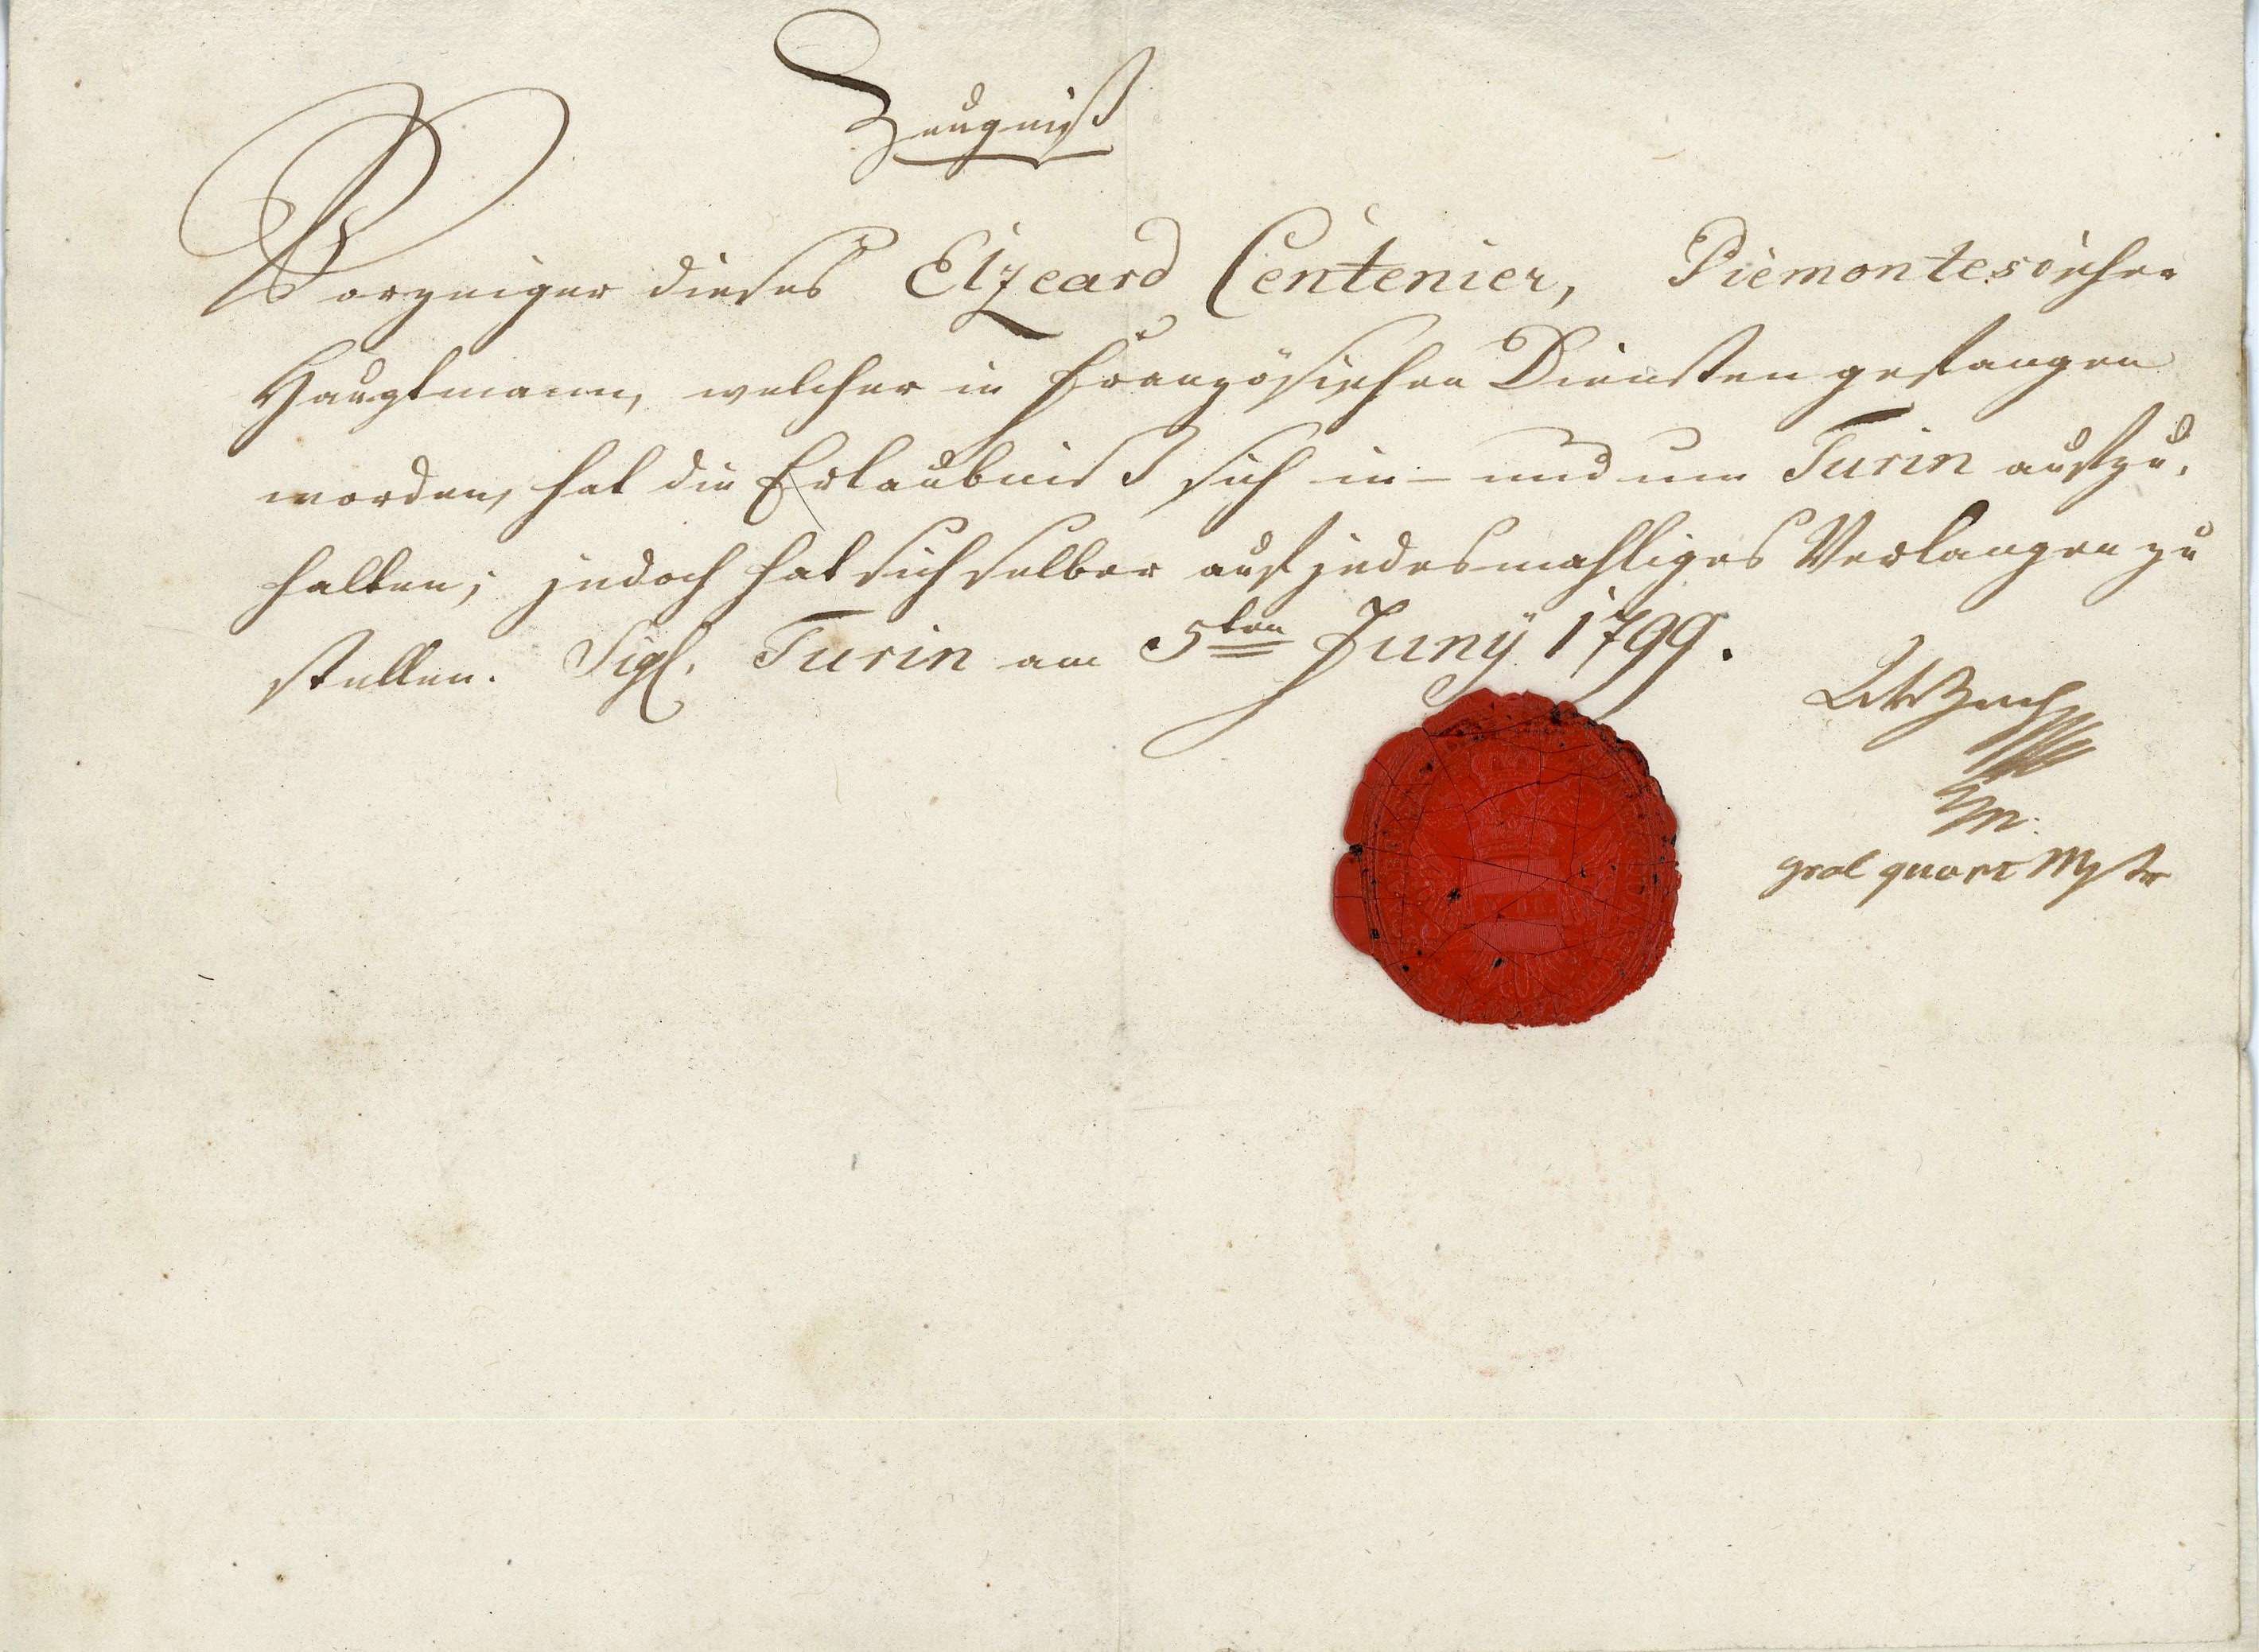 Zeugniß
Vorzeiger dieses Elzeard Centenier, Piemontesischer
Hauptmann, welcher in französischen Diensten gefangen
worden, hat die Erlaubniß sich in- und um Turin aufzu-
halten; jedoch hat sich selber auf jedesmahliges Verlangen zu
stellen. Sigl. Turin am 5ten Juny 1799.
Zach
gral quart Mstr